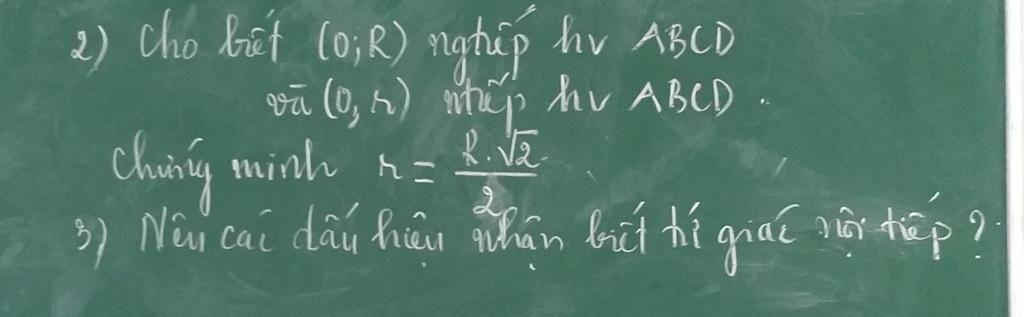 2) Cho biết (O;R) ngtiếp hv ABCD
và (O, r) ntiếp hv ABCD.
Chứng minh r = \frac{R.\sqrt{2}}{2}
3) Nêu các dấu hiệu nhận biết tứ giác nội tiếp?